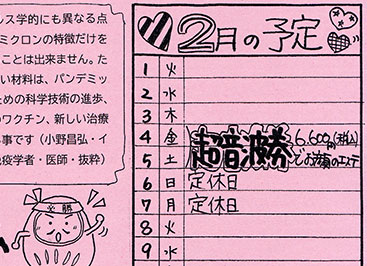 ルス学的にも異なる点
ミクロンの特徴だけを
ことは出来ません。た
い材料は、パンデミッ
ための科学技術の進歩、
のワクチン、新しい治療
事です（小野昌弘・イ
免疫学者・医師・抜粋）
必勝
2月の予定
1 火
2 水
3 木
4 金
5 土
超音波券
6,600円(税込)
でお顔のエステ
6 日 定休日
7 月 定休日
8 火
9 水